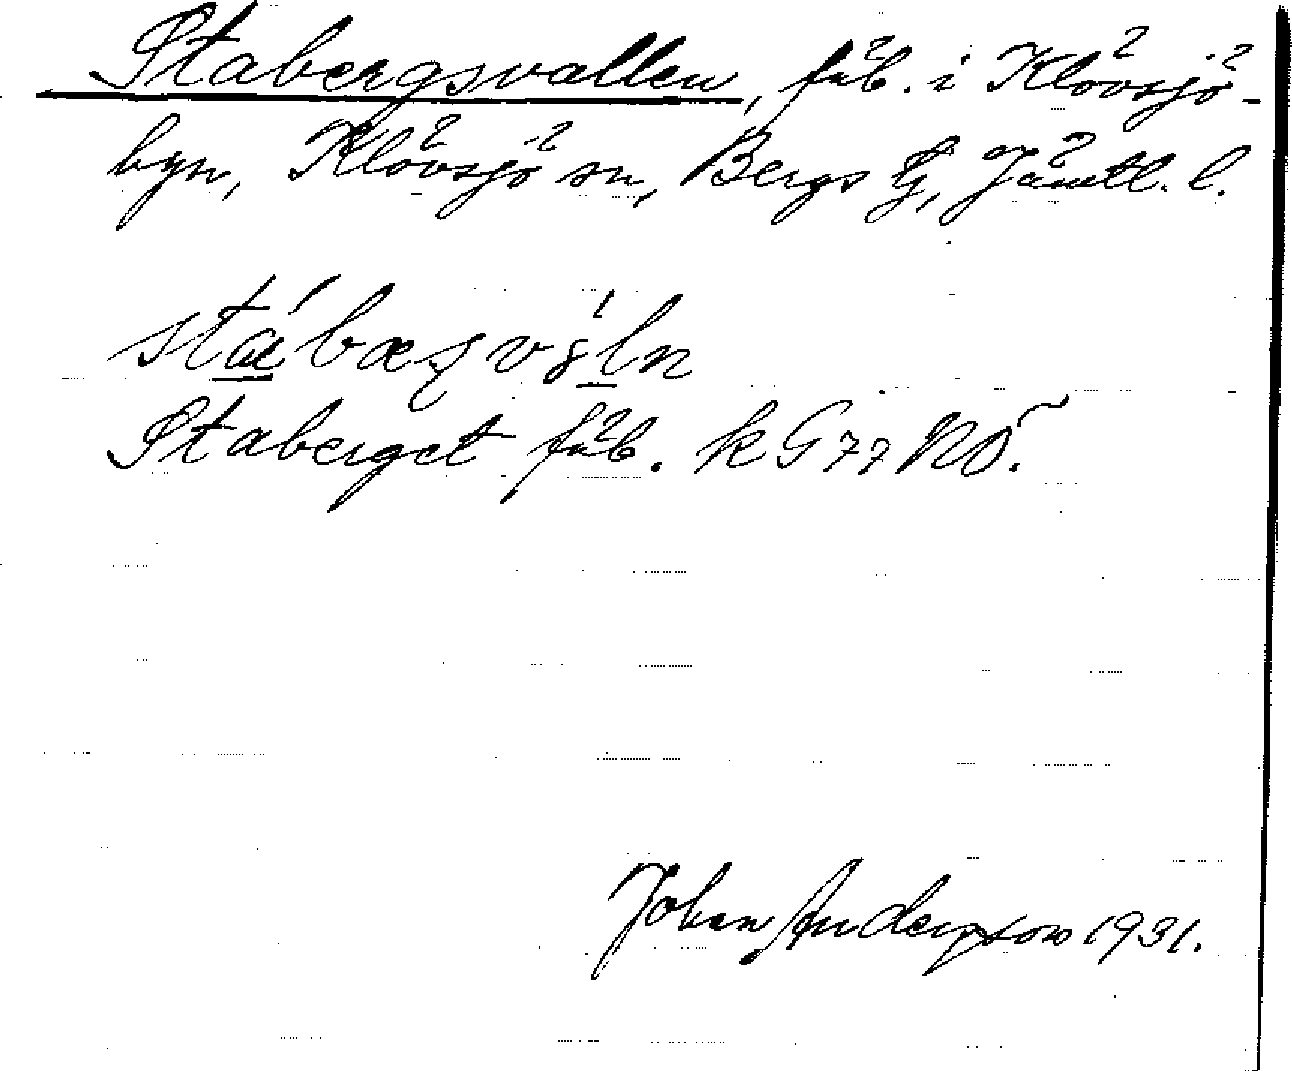 Stabergsvallen, fäb. i Klövsjö-
byn, Klövsjö sn, Bergs tg, Jämtl. l.
Staberget fäb. kG77NÖ.
Johan Anderson 1931.